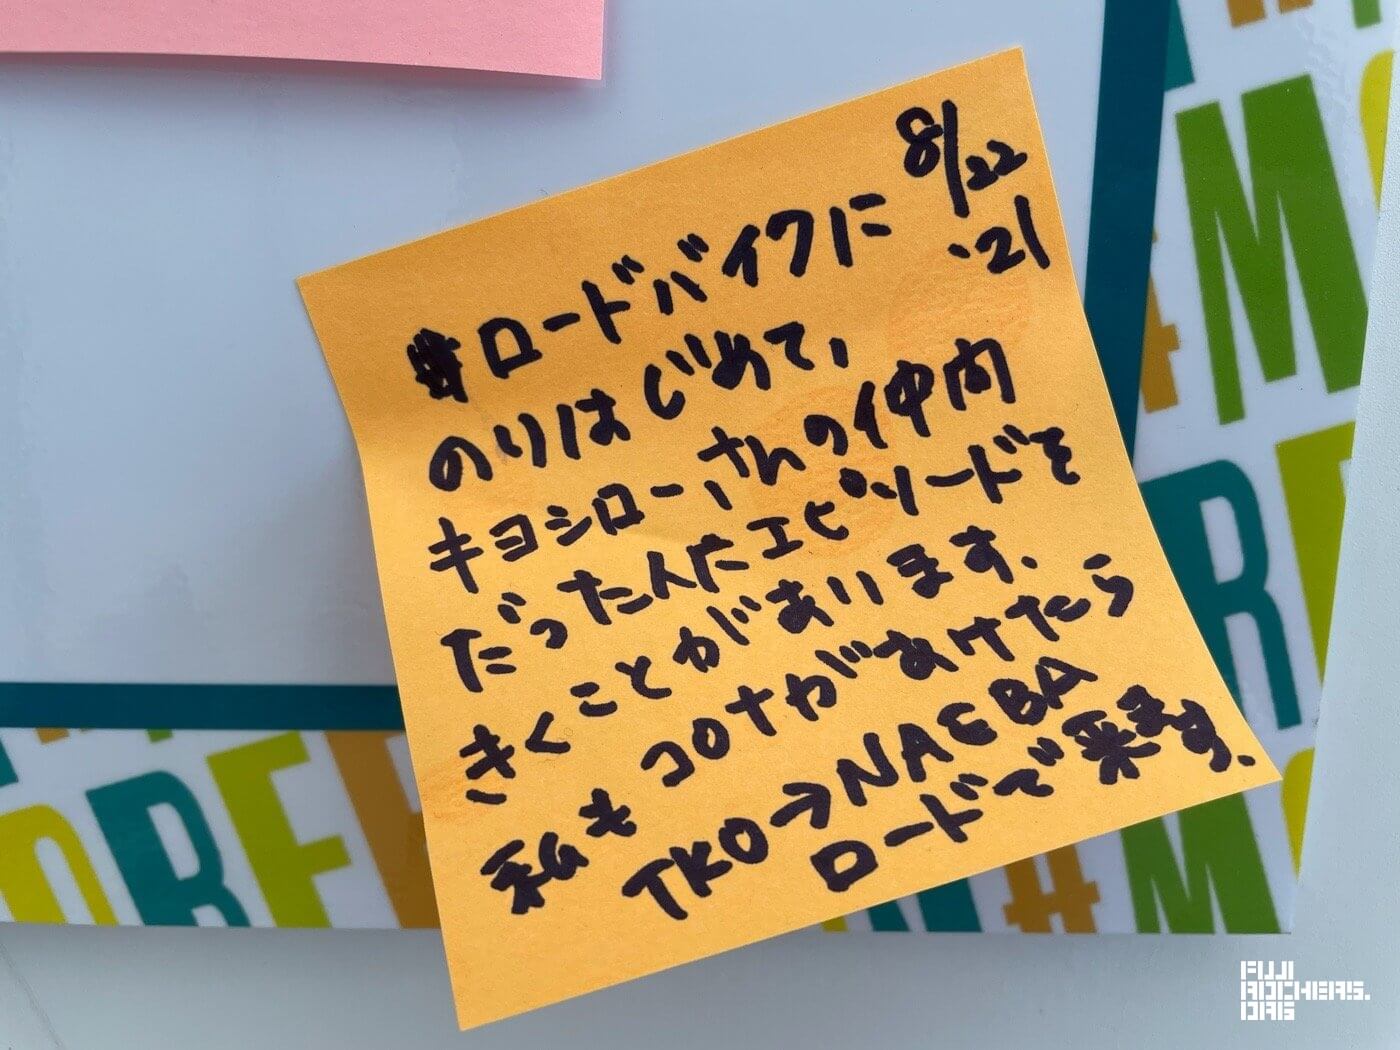 8/22
'21
ロードバイクに
のりはじめて、
キヨシローさんの仲間
だった人にエピソードを
きくことがあります.
私もコロナがあけたら
TKO→NAEBA
ロードで来ます.
FUJI
ROCKERS.
ORG